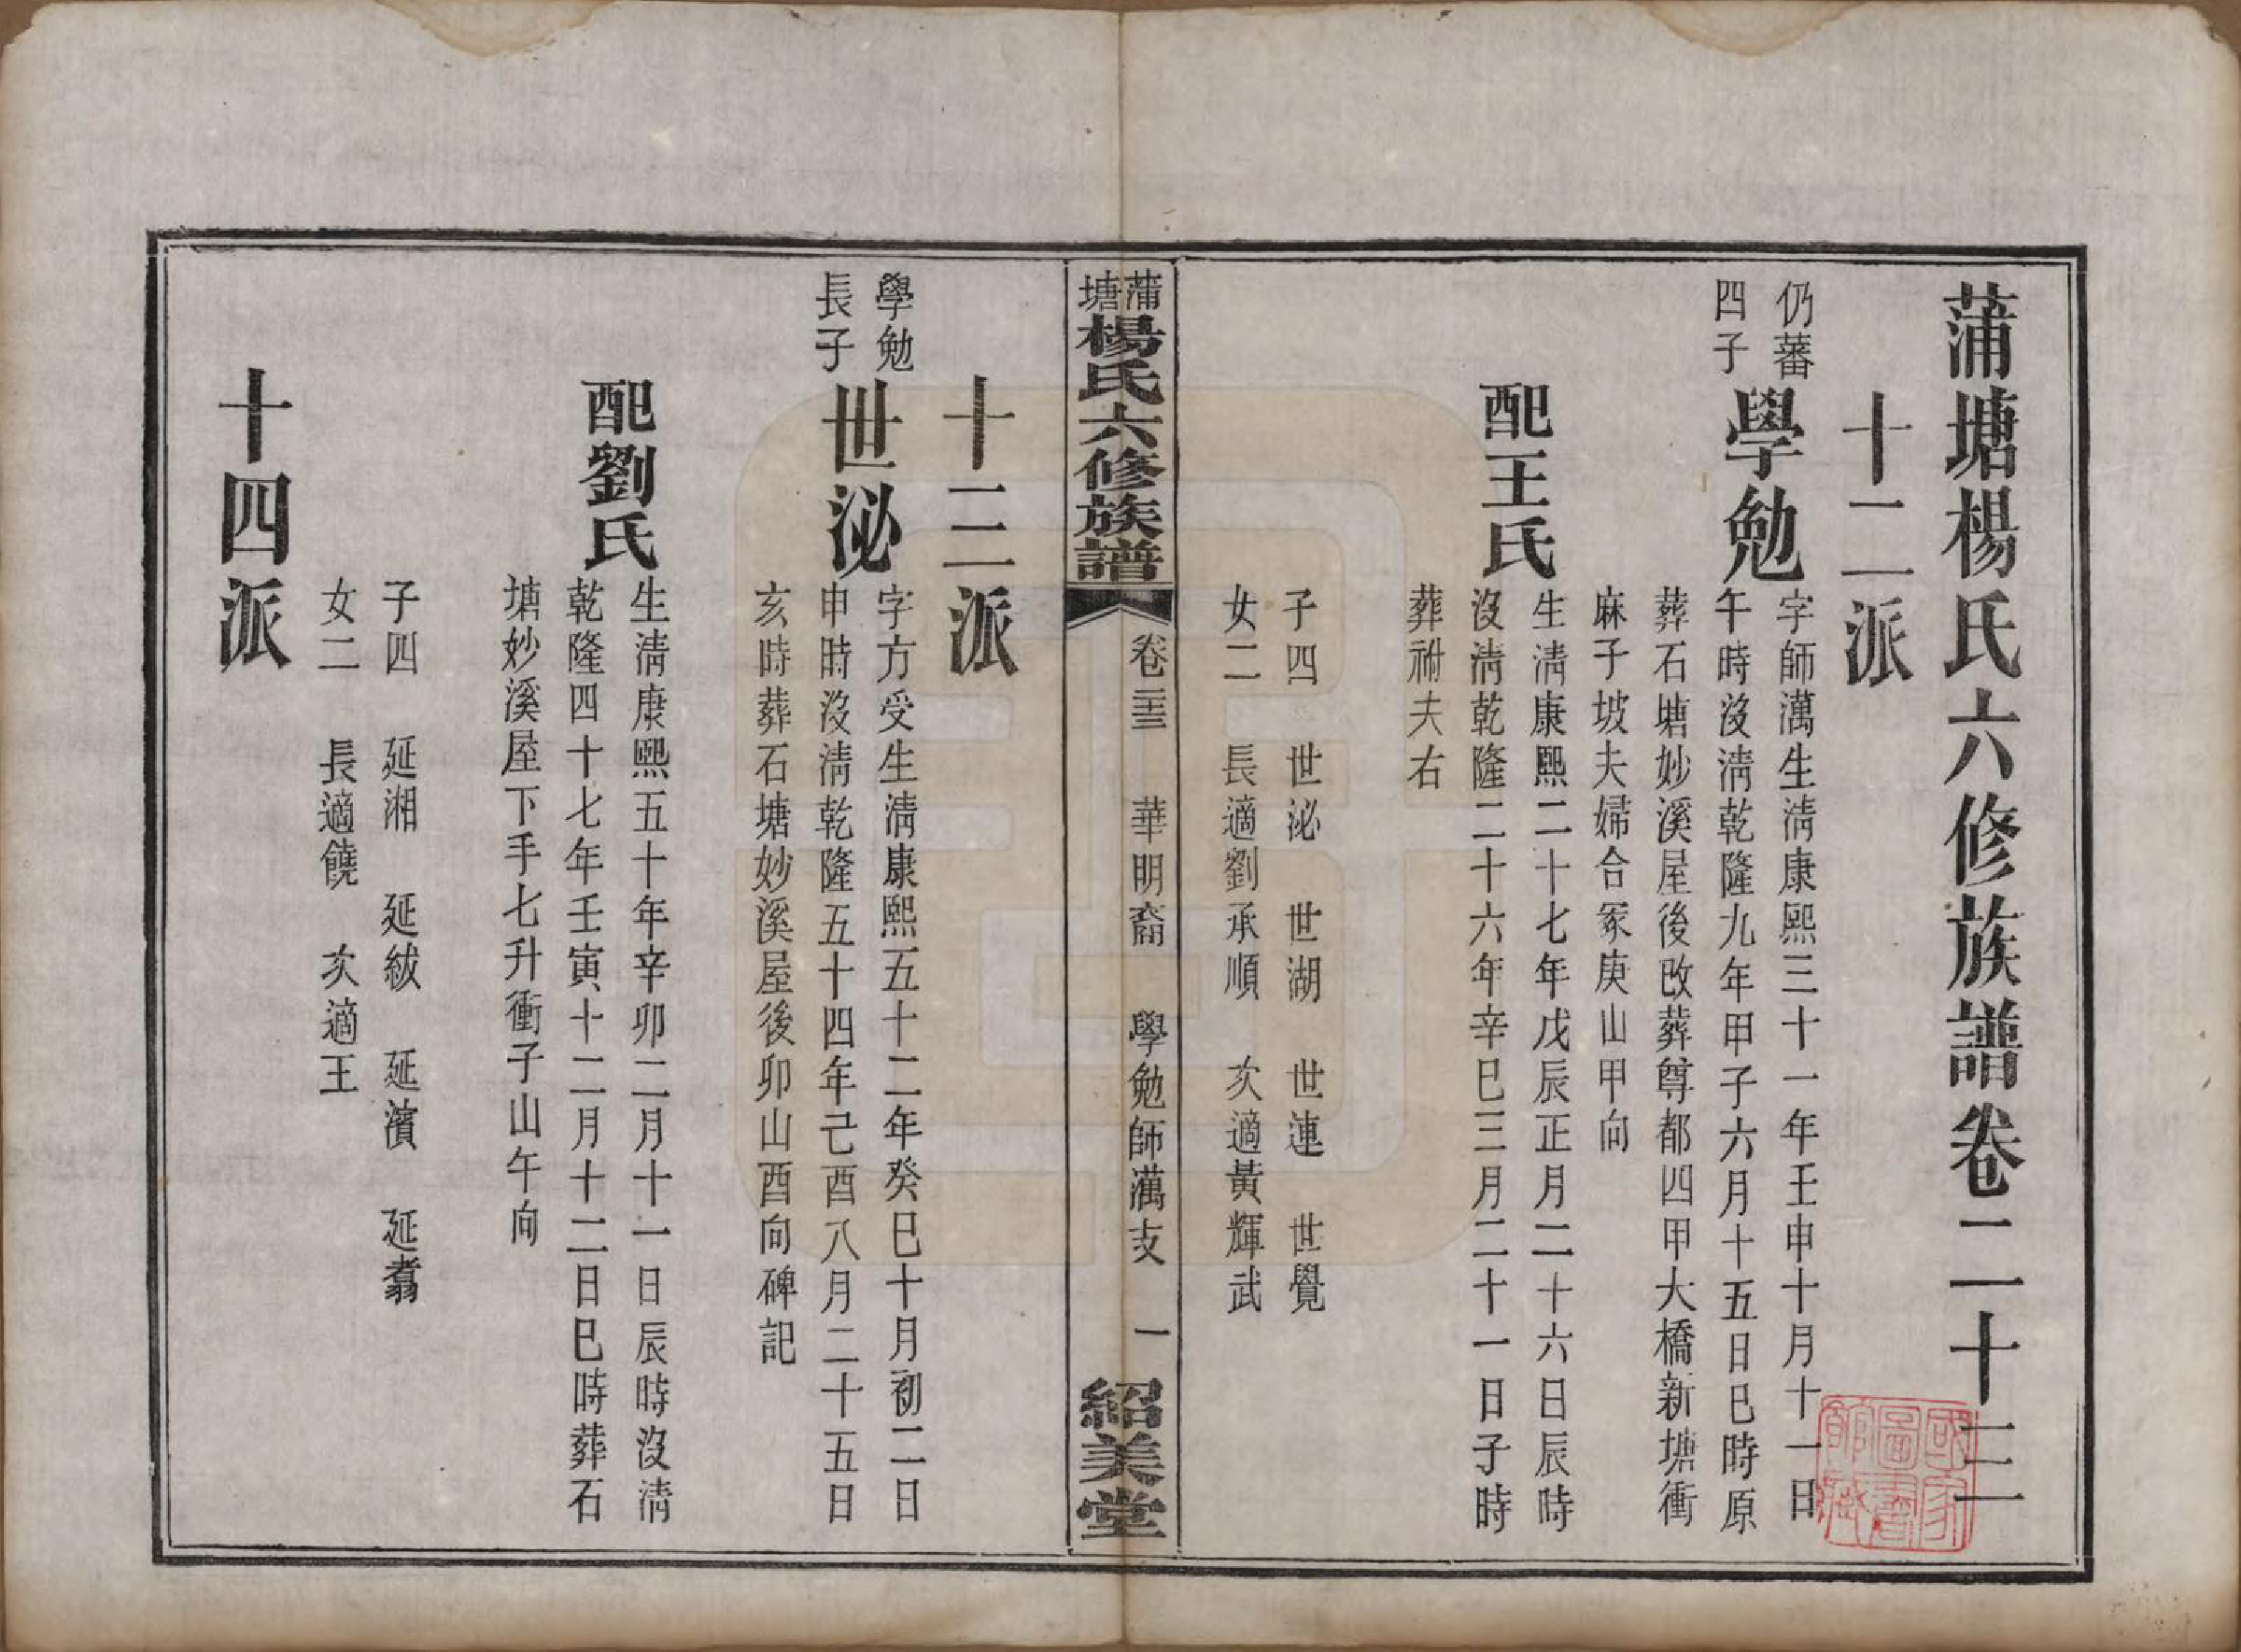 蒲塘楊氏六修族譜卷二十三
十二派
仍蕃
四子
學勉
字師澫生清康熙三十一年壬申十月十一日
午時沒清乾隆九年甲子六月十五日巳時原
葬石塘妙溪屋後改葬尊都四甲大橋新塘衝
麻子坡夫婦合冢庚山甲向
配王氏
生清康熙二十七年戊辰正月二十六日辰時
沒清乾隆二十六年辛巳三月二十一日子時
葬祔夫右
子四　世泌　世湖　世連　世覺
女二　長適劉承順　次適黃輝武
蒲塘楊氏六修族譜
卷二十三　華明裔　學勉師澫支　一
紹美堂
十三派
學勉
長子
世泌
字方受生清康熙五十二年癸巳十月初二日
申時沒清乾隆五十四年己酉八月二十五日
亥時葬石塘妙溪屋後卯山酉向碑記
配劉氏
生清康熙五十年辛卯二月十一日辰時沒清
乾隆四十七年壬寅十二月十二日巳時葬石
塘妙溪屋下手七升衝子山午向
子四　延湘　延紱　延濱　延翥
女二　長適饒　次適王
十四派
國家圖書館藏